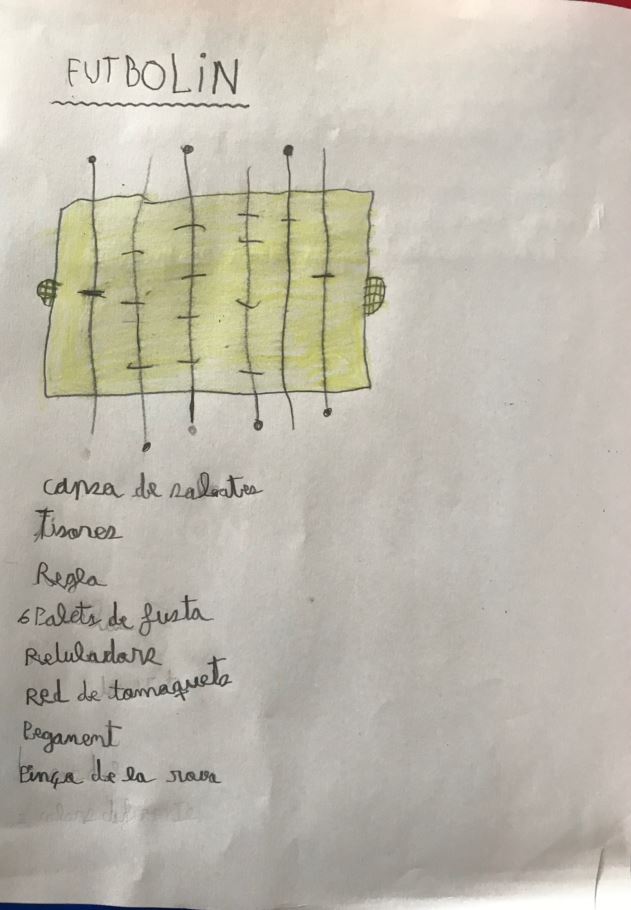 FUTBOLIN
capsa de sabates
Tisores
Regla
6 Palets de fusta
Retuladors
Red de tomaquets
Peganent
Pinça de la rova